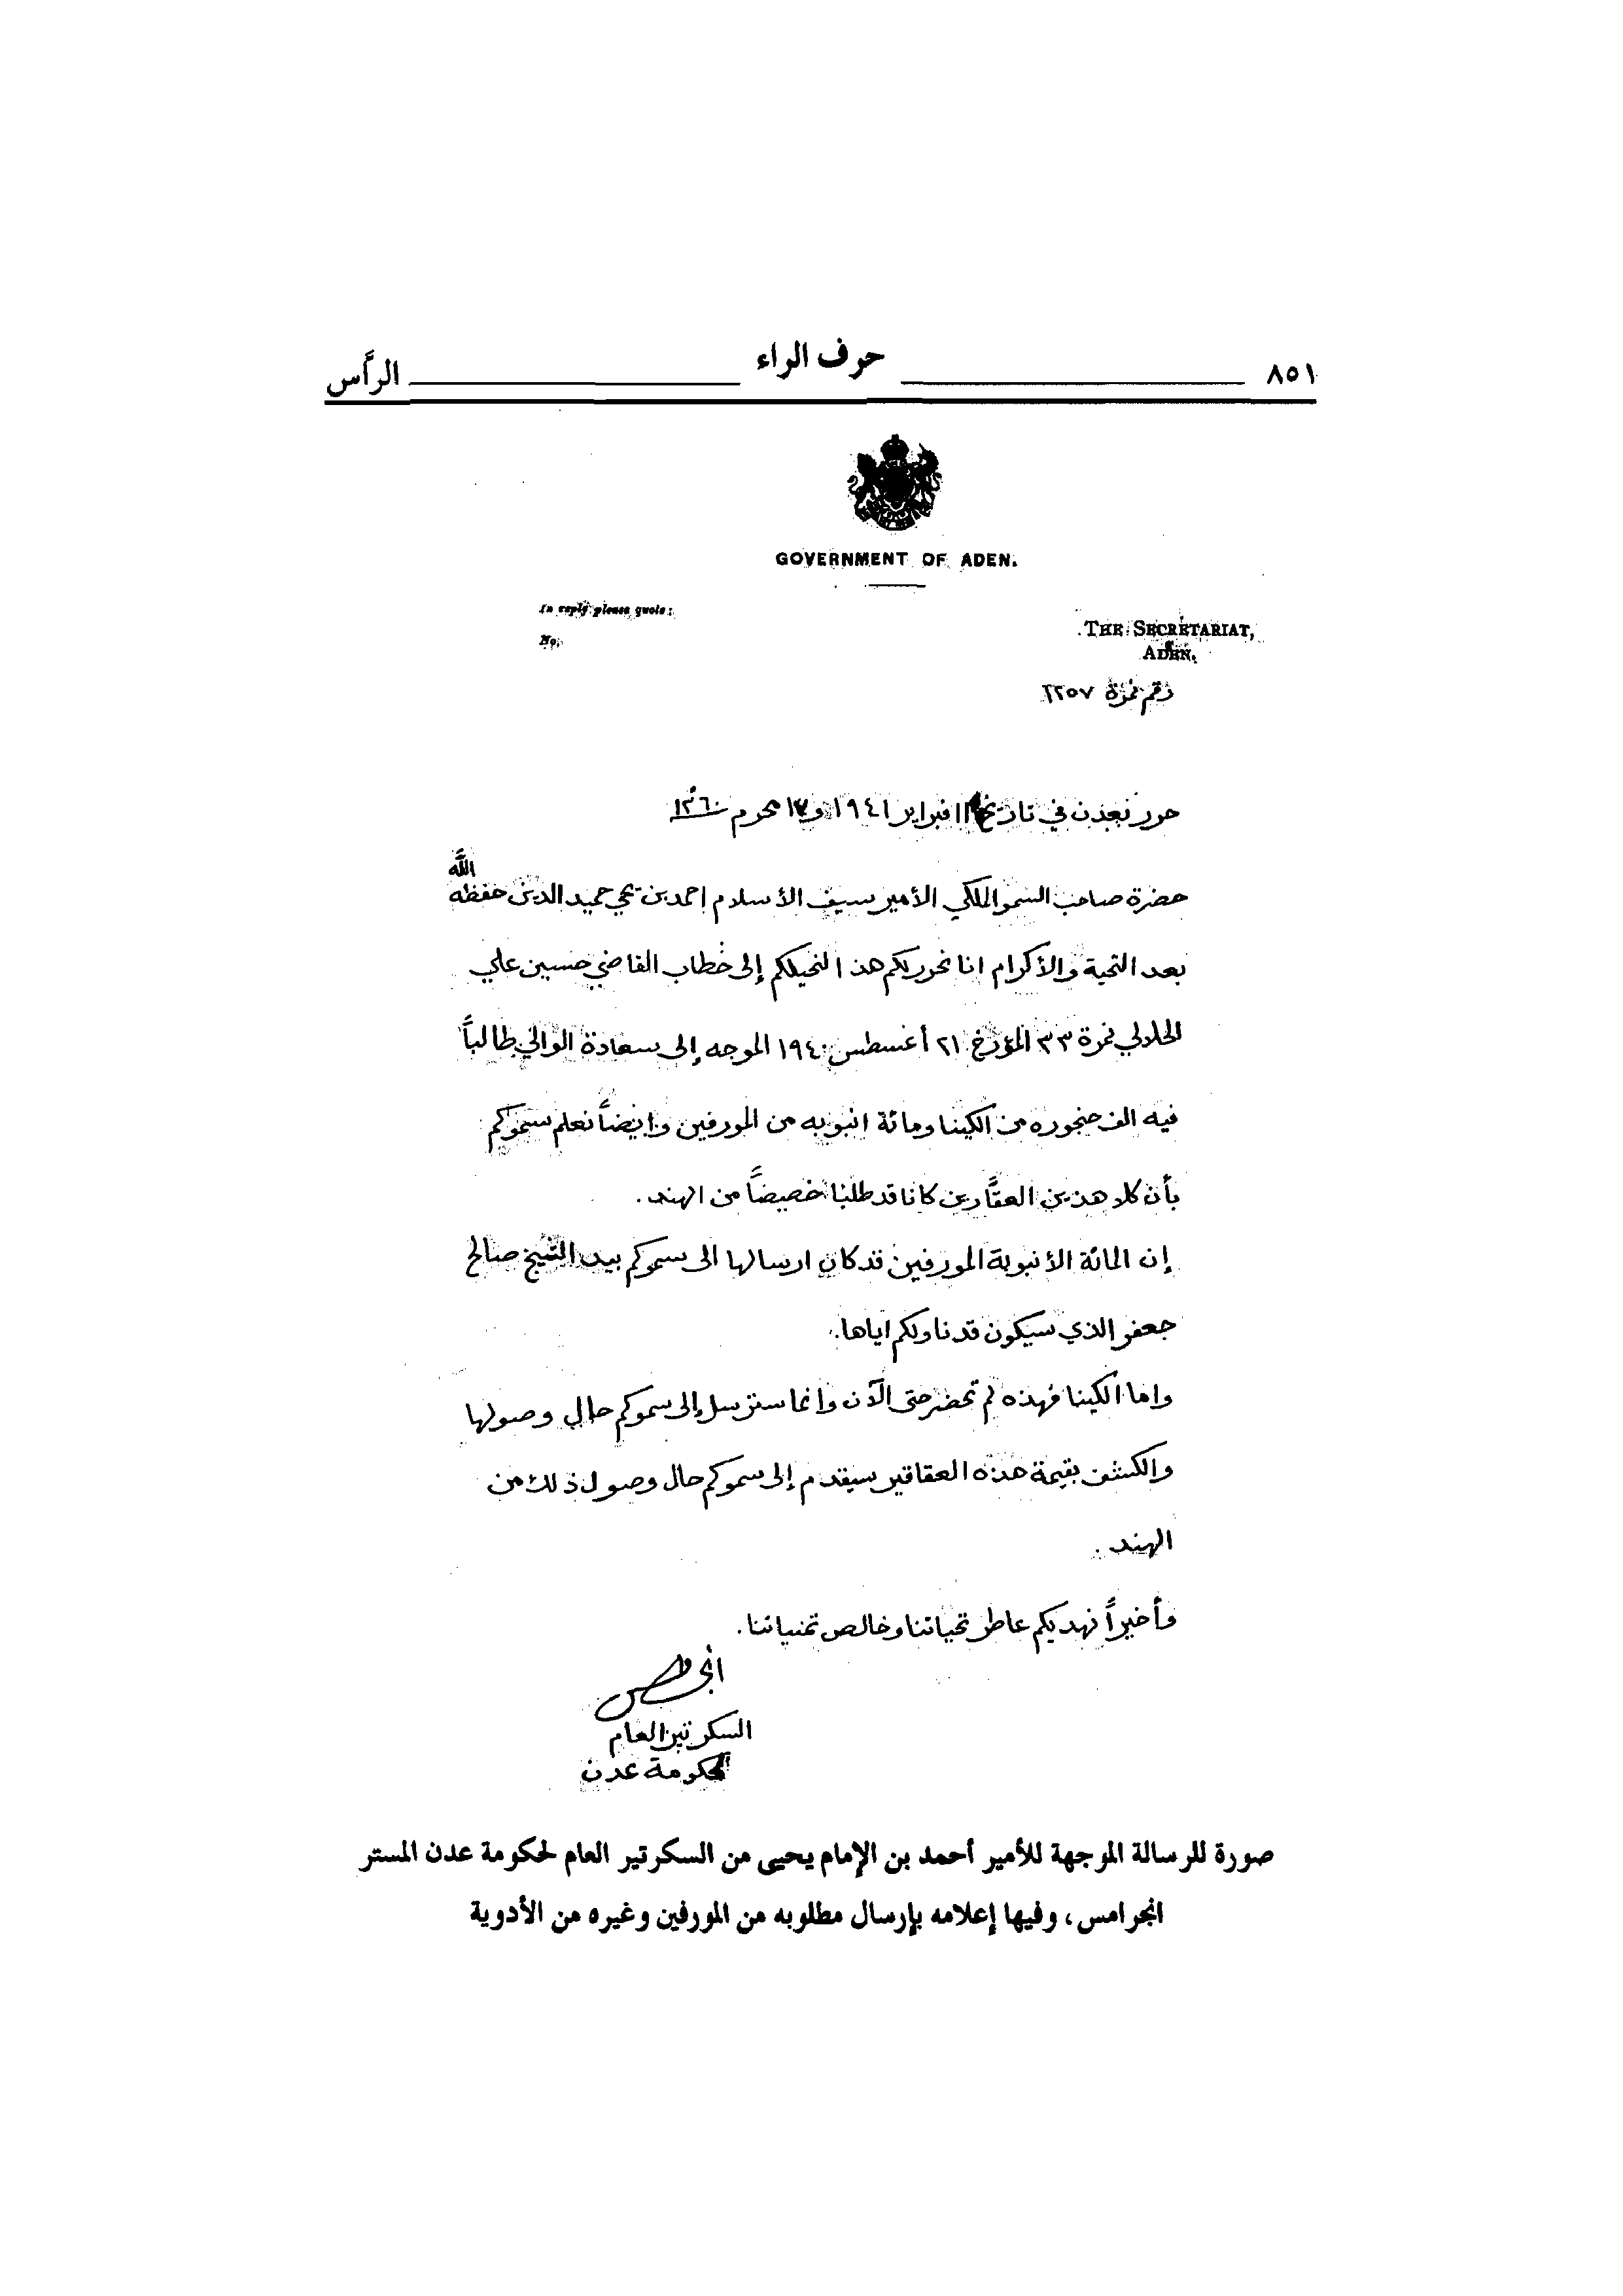 ٨٥١ حرف الراء الرأس
GOVERNMENT OF ADEN.
In reply please quote:
No.
THE SECRETARIAT,
ADEN.
رقم نمرة ٢٢٥٧
حرر بعدن في تاريخ ١١ فبراير ١٩٤١ و ١٧ محرم ١٣٦٠
حضرة صاحب السمو الملكي الأمير سيف الأسلام احمد بن يحي حميد الدين حفظه الله
بعد التحية والأكرام انا نحرر لكم هذا لنحيلكم إلى خطاب القاضي حسين علي
الحلالي نمرة ٣٣ المؤرخ ٢١ أغسطس ١٩٤٠ الموجه إلى سعادة الوالي طالباً
فيه الف حنجوره من الكينا ومائة انبوبه من المورفين وايضاً نعلم سموكم
بأن كلا هذين العقَّارين كانا قد طلبا خصيصاً من الهند.
إن المائة الأنبوبة المورفين قد كان ارسالها الى سموكم بيد الشيخ صالح
جعفر الذي سيكون قد ناولكم اياها.
واما الكينا فهذه لم تحضر حتى الآن وانما سترسل إلى سموكم حال وصولها
والكشف بقيمة هذه العقاقير سيقدم إلى سموكم حال وصول ذلك من
الهند.
وأخيراً نهديكم عاطر تحياتنا وخالص تمنياتنا.
السكرتير العام
لحكومة عدن
صورة للرسالة الموجهة للأمير أحمد بن الإمام يحيى من السكرتير العام لحكومة عدن المستر
انجرامس، وفيها إعلامه بإرسال مطلوبه من المورفين وغيره من الأدوية